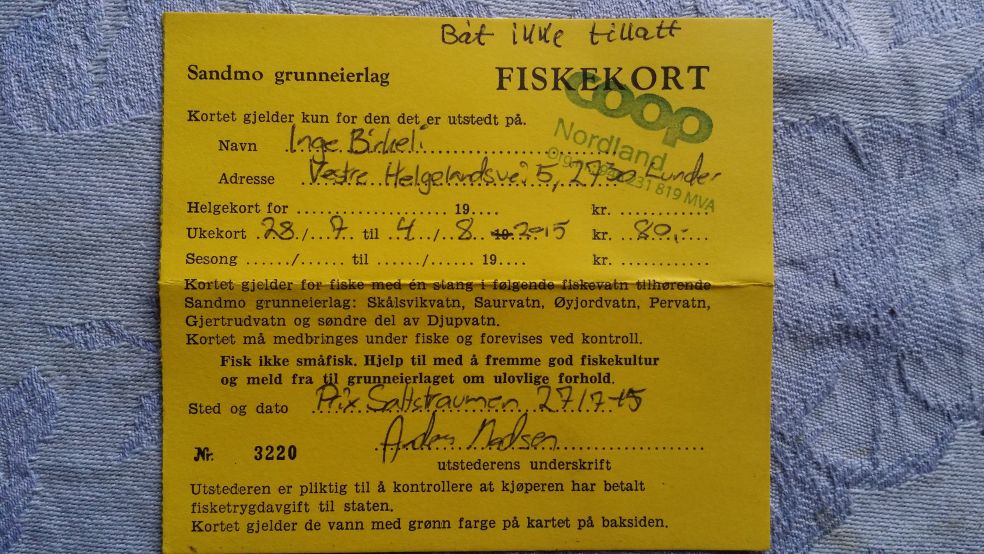 Båt ikke tillatt
Sandmo grunneierlag
FISKEKORT
coop
Nordland
Kortet gjelder kun for den det er utstedt på.
Navn Inge Birkeli
Adresse Vestre Helgelandsvei 5, 2730 Lunner
231 819 MVA
Helgekort for .......................... 19..... kr. ............
Ukekort 28 / 7 til 4 / 8 19 2015 kr. 80,-
Sesong ....../...... til ....../...... 19..... kr. ............
Kortet gjelder for fiske med én stang i følgende fiskevatn tilhørende
Sandmo grunneierlag: Skålsvikvatn, Saurvatn, Øyjordvatn, Pervatn,
Gjertrudvatn og søndre del av Djupvatn.
Kortet må medbringes under fiske og forevises ved kontroll.
Fisk ikke småfisk. Hjelp til med å fremme god fiskekultur
og meld fra til grunneierlaget om ulovlige forhold.
Sted og dato Prix Saltstraumen 27/7-15
Anders Madsen
Nr. 3220
utstederens underskrift
Utstederen er pliktig til å kontrollere at kjøperen har betalt
fisketrygdavgift til staten.
Kortet gjelder de vann med grønn farge på kartet på baksiden.